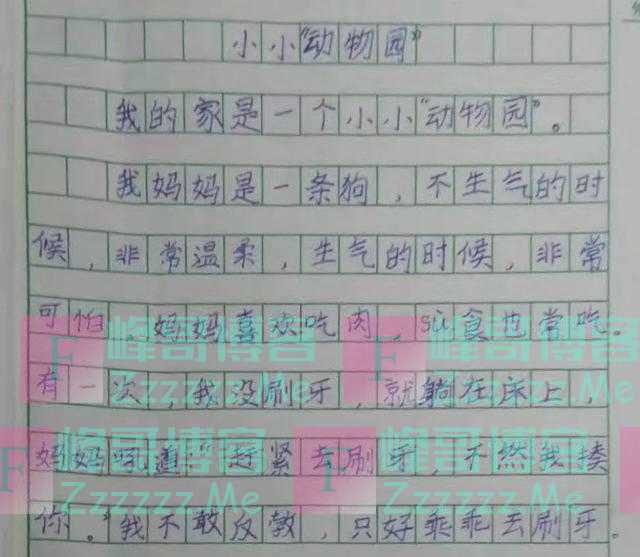 小小“动物园”
我的家是一个小小“动物园”。
我妈妈是一条狗，不生气的时
候，非常温柔，生气的时候，非常
可怕。妈妈喜欢吃肉，sù食也常吃。
有一次，我没刷牙，就躺在床上，
妈妈吼道：“赶紧去刷牙，不然我揍
你。”我不敢反教，只好乖乖去刷牙。
F 峰哥博客
Zzzzzz.Me
F 峰哥博客
Zzzzzz.Me
F 峰哥博客
Zzzzzz.Me
F 峰哥博客
Zzzzzz.Me